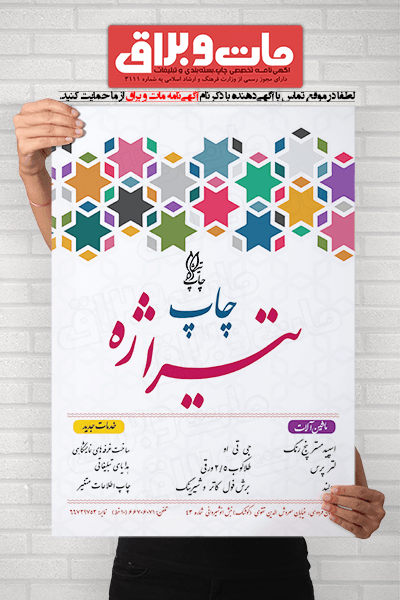 مات و براق
آگهی‌نامه تخصصی چاپ، بسته‌بندی و تبلیغات
دارای مجوز رسمی از وزارت فرهنگ و ارشاد اسلامی به شماره ۳۱۱۱
لطفا در موقع تماس با آگهی‌دهنده با ذکر نام آگهی‌نامه مات و براق از ما حمایت کنید.
چاپ
چاپ
تیراژه
ماشین آلات
خدمات جدید
اسپید مستر پنج رنگ
جی تی او
ساخت غرفه های نمایشگاهی
لتر پرس
طلاکوب ۲/۵ ورقی
هدایای تبلیغاتی
بلند
برش فول کاتر و شیرینک
چاپ اطلاعات متغیر
خیابان سروش شماره ۴۳ تلفن: نمابر: ۶۶۷۲۹۷۵۲